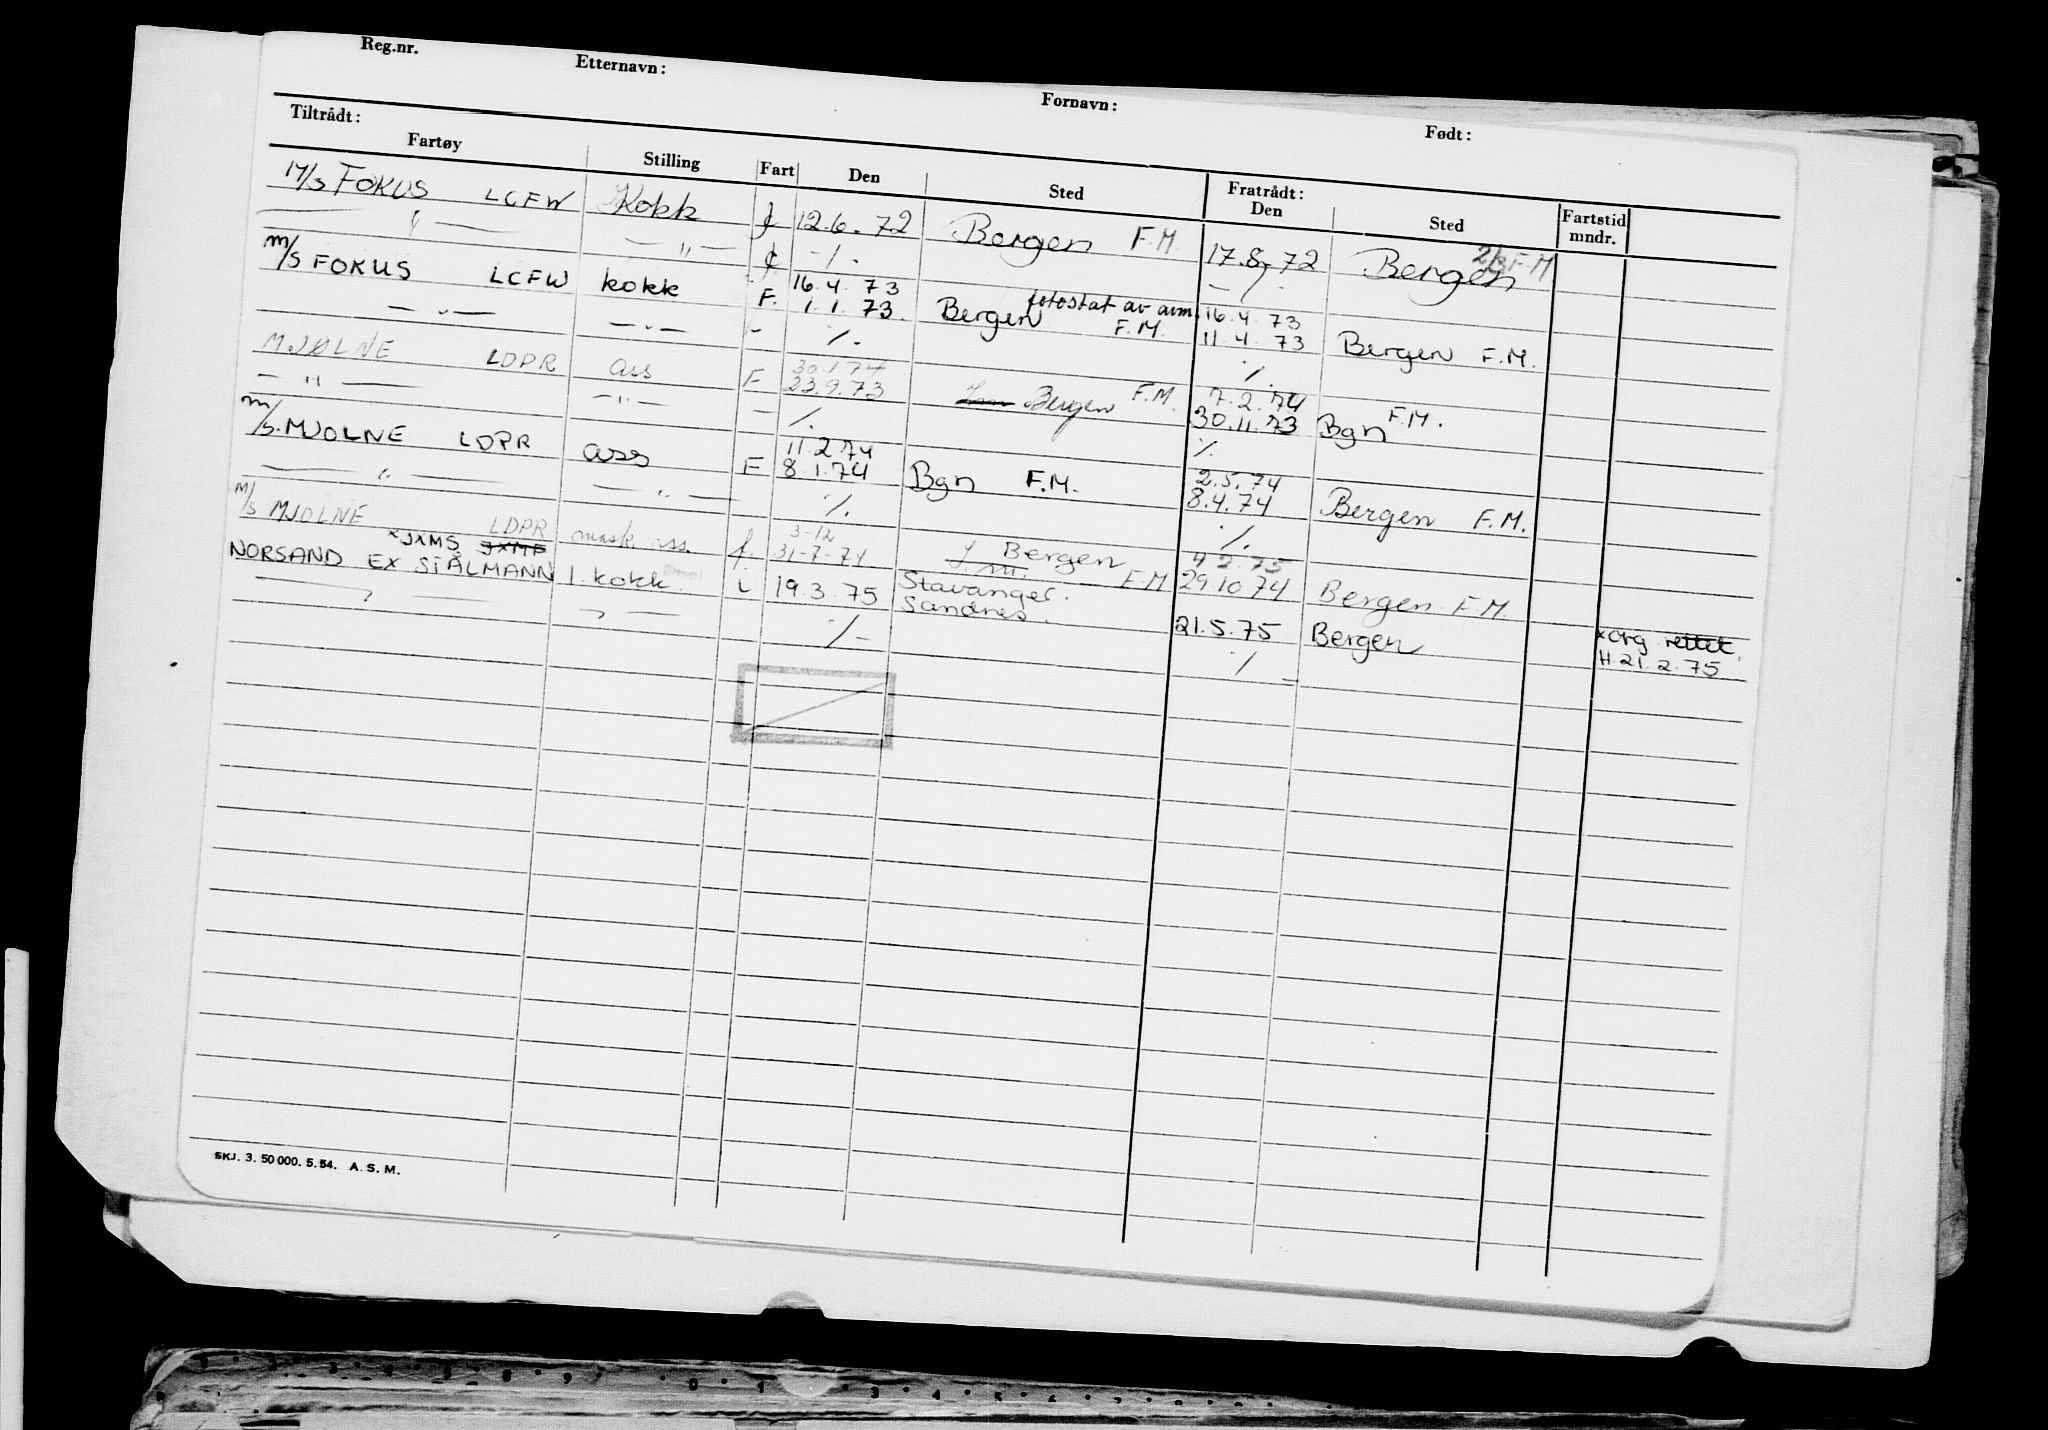 Reg.nr. Etternavn: Fornavn: Født:
Tiltrådt: Fratrådt:
Fartøy Stilling Fart Den Sted Den Sted Fartstid mndr.
M/S FOKUS LCFW Kokk f 12.6.72 Bergen F.M. 17.8.72 Bergen F.M
— " — — " — -/.
16.4.73 fotostat av avm. 16.4.73
M/S FOKUS LCFW kokk F. 1.1.73. Bergen F.M. 11.4.73 Bergen F.M.
— " — — " — - ./.
30.1.74 7.2.74
MJØLNE LDPR ass F 23.9.73 Bergen F.M. 30.11.73 Bgn F.M.
— " — — " — - ./.
11.2.74 2.5.74
M/S. MJOLNE LDPR ass F 8.1.74 Bgn F.M. 8.4.74 Bergen F.M.
— " — — " — ./.
3-12 4.2.75
M/S MJOLNE LDPR mask. ass. f. 31-7-74 Bergen F.M 29.10.74 Bergen F.M.
xJXMS JXMF
NORSAND EX SJALMANN 1. kokk. 19.3.75 Stavanger. Sandnes. 21.5.75 Bergen xorg rettet. H.21.2.75
— " — " ./. ./.
SKJ. 3. 50 000. 5. 54. A. S. M.